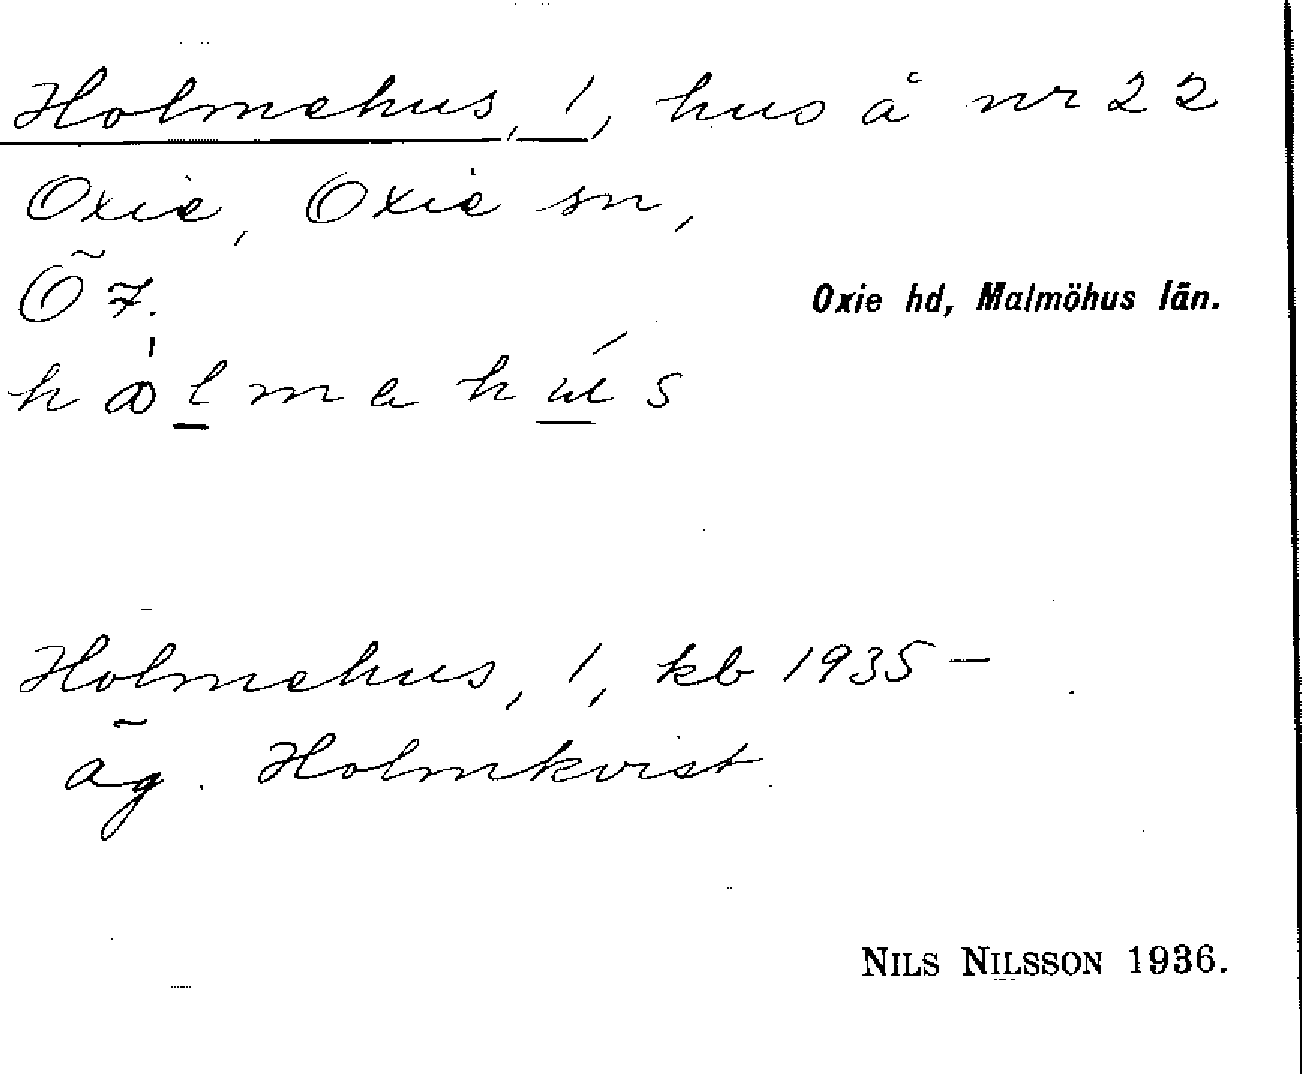 Holmehus, 1, hus å nr 22
Oxie, Oxie sn,
Ö 7.
Oxie hd, Malmöhus län.
Holmehus, 1, kb 1935 —
äg. Holmkvist.
NILS NILSSON 1936.